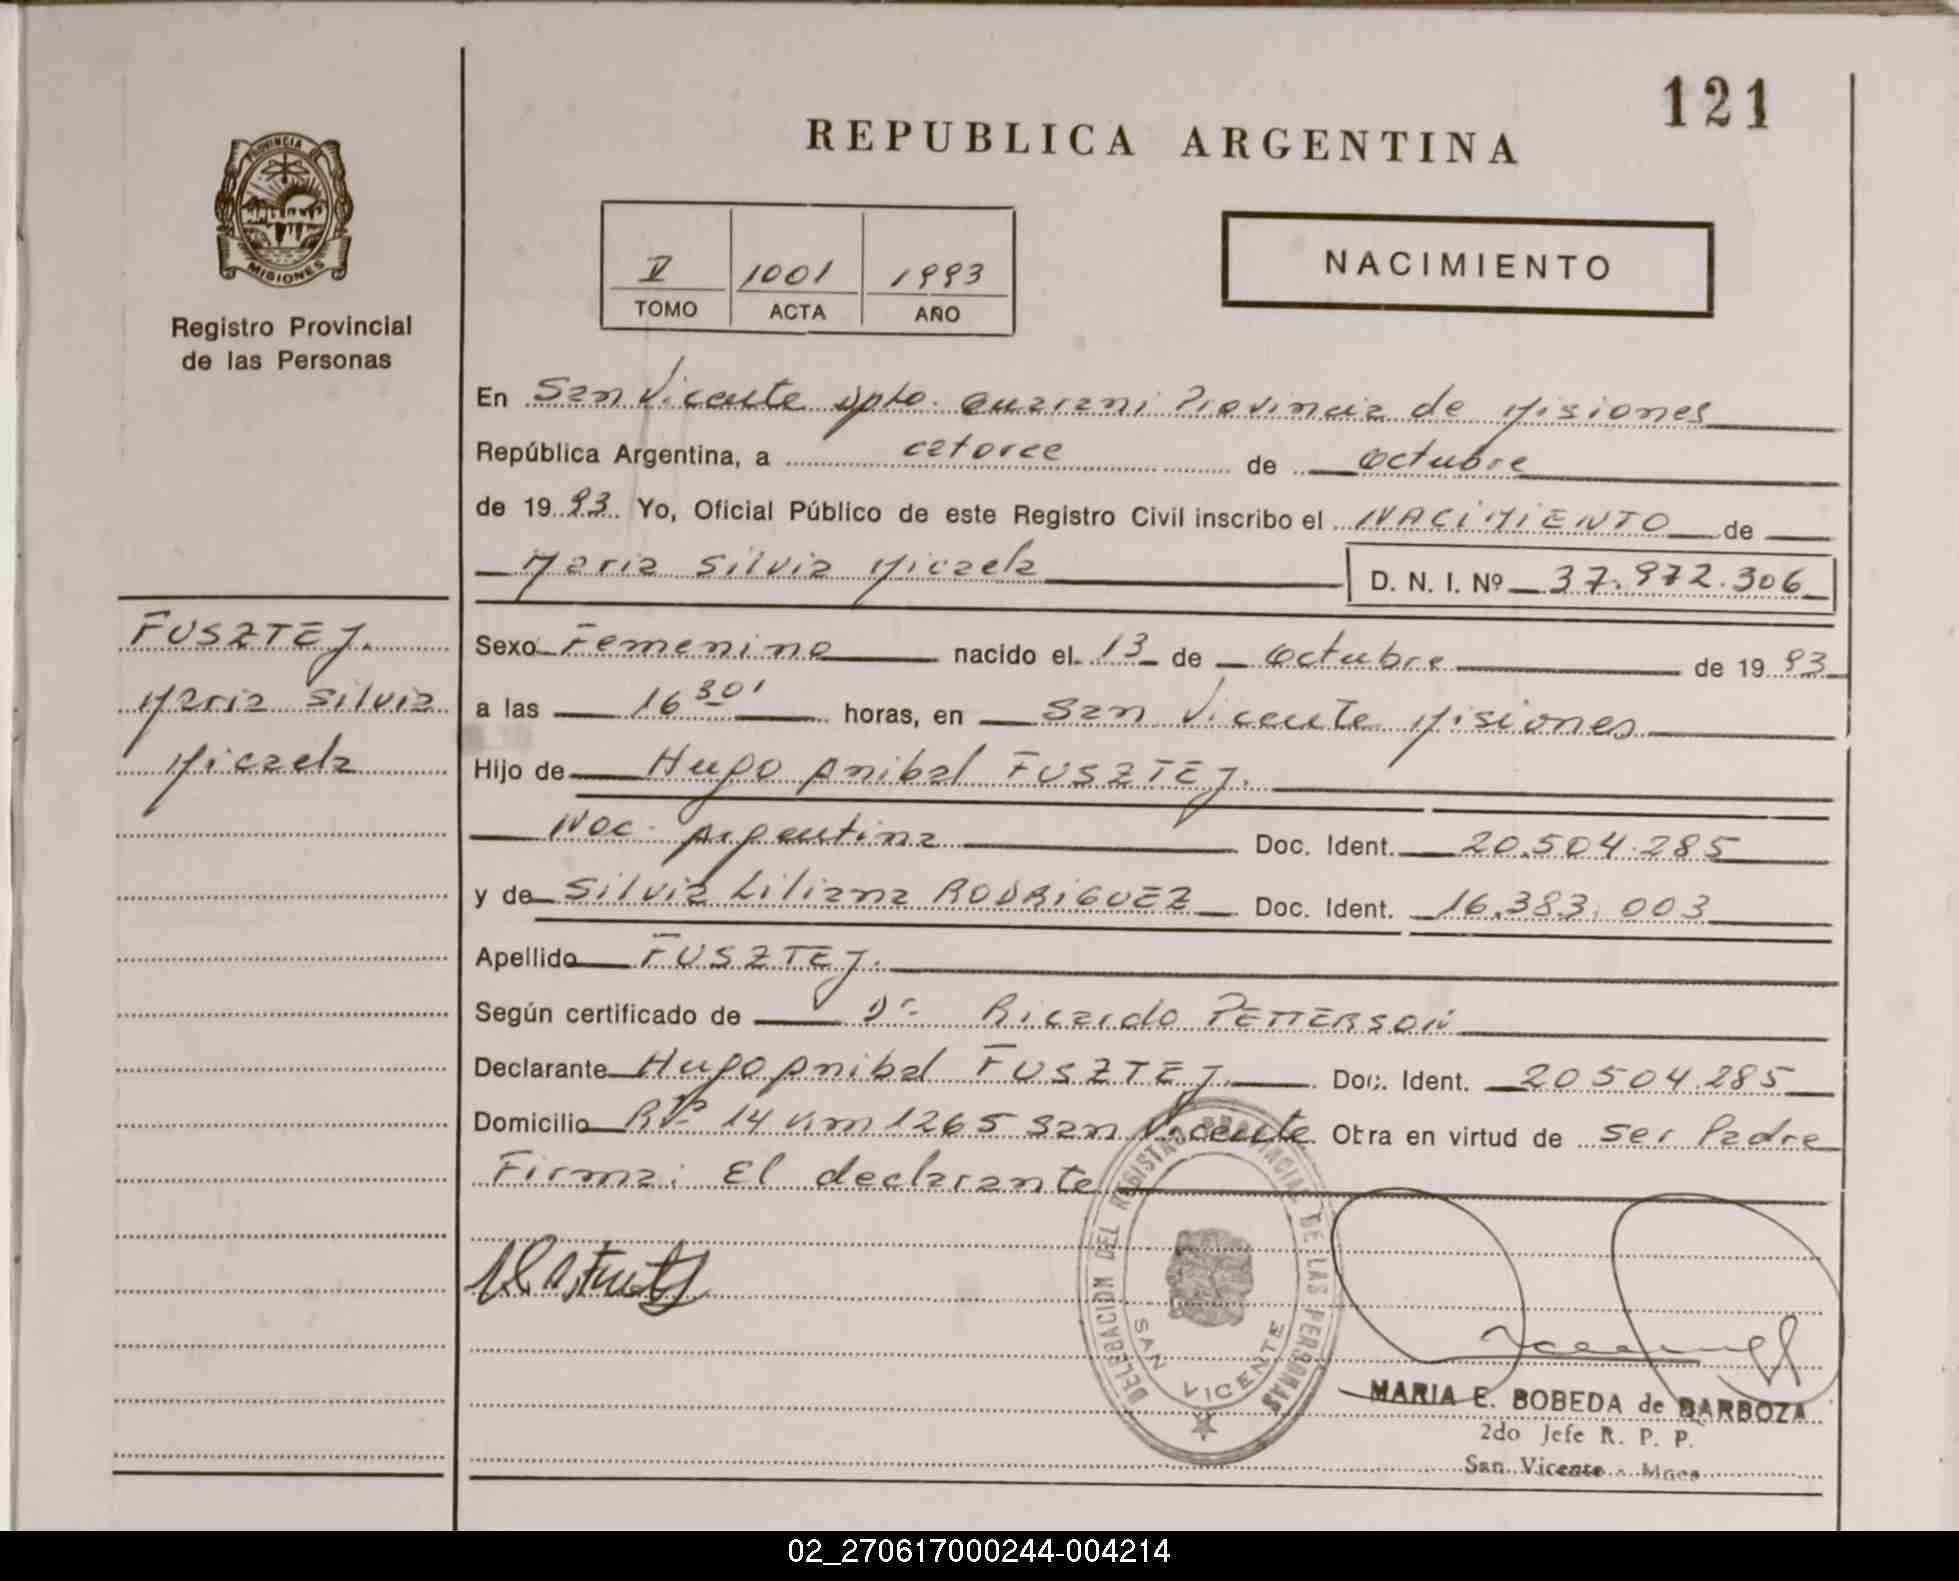 121
REPUBLICA ARGENTINA
PROVINCIA DE
MISIONES
Registro Provincial
de las Personas
V 1001 1993
TOMO ACTA AÑO
NACIMIENTO
En San Vicente Dpto. Guarani Provincia de Misiones
República Argentina, a catorce de octubre
de 1993 Yo, Oficial Público de este Registro Civil inscribo el NACIMIENTO de
Maria Silvia Micaela D. N. I. Nº 37.972.306
FUSZTEJ.
Maria Silvia
Micaela
Sexo Femenino nacido el 13 de octubre de 1993
a las 16 30' horas, en San Vicente Misiones
Hijo de Hugo Anibal FUSZTEJ.
Nac. Argentina Doc. Ident. 20.504.285
y de Silvia Liliana RODRIGUEZ Doc. Ident. 16.383.003
Apellido FUSZTEJ.
Según certificado de Dr. Ricardo PETTERSON
Declarante Hugo Anibal FUSZTEJ Doc. Ident. 20504.285
Domicilio 14 Km 1265 San Vicente Obra en virtud de ser Padre
Firma: El declarante
DELEGACION DEL REGISTRO PROVINCIAL DE LAS PERSONAS
SAN VICENTE
MARIA E. BOBEDA de BARBOZA
2do Jefe R. P. P.
San Vicente - Mnes
02_270617000244-004214